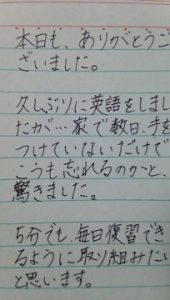 本日も、ありがとうご
ざいました。
久しぶりに英語をしまし
たが…家で数日、手を
つけていないだけで
こうも忘れるのかと、
驚きました。
5分でも、毎日復習でき
るように取り組みたい
と思います。